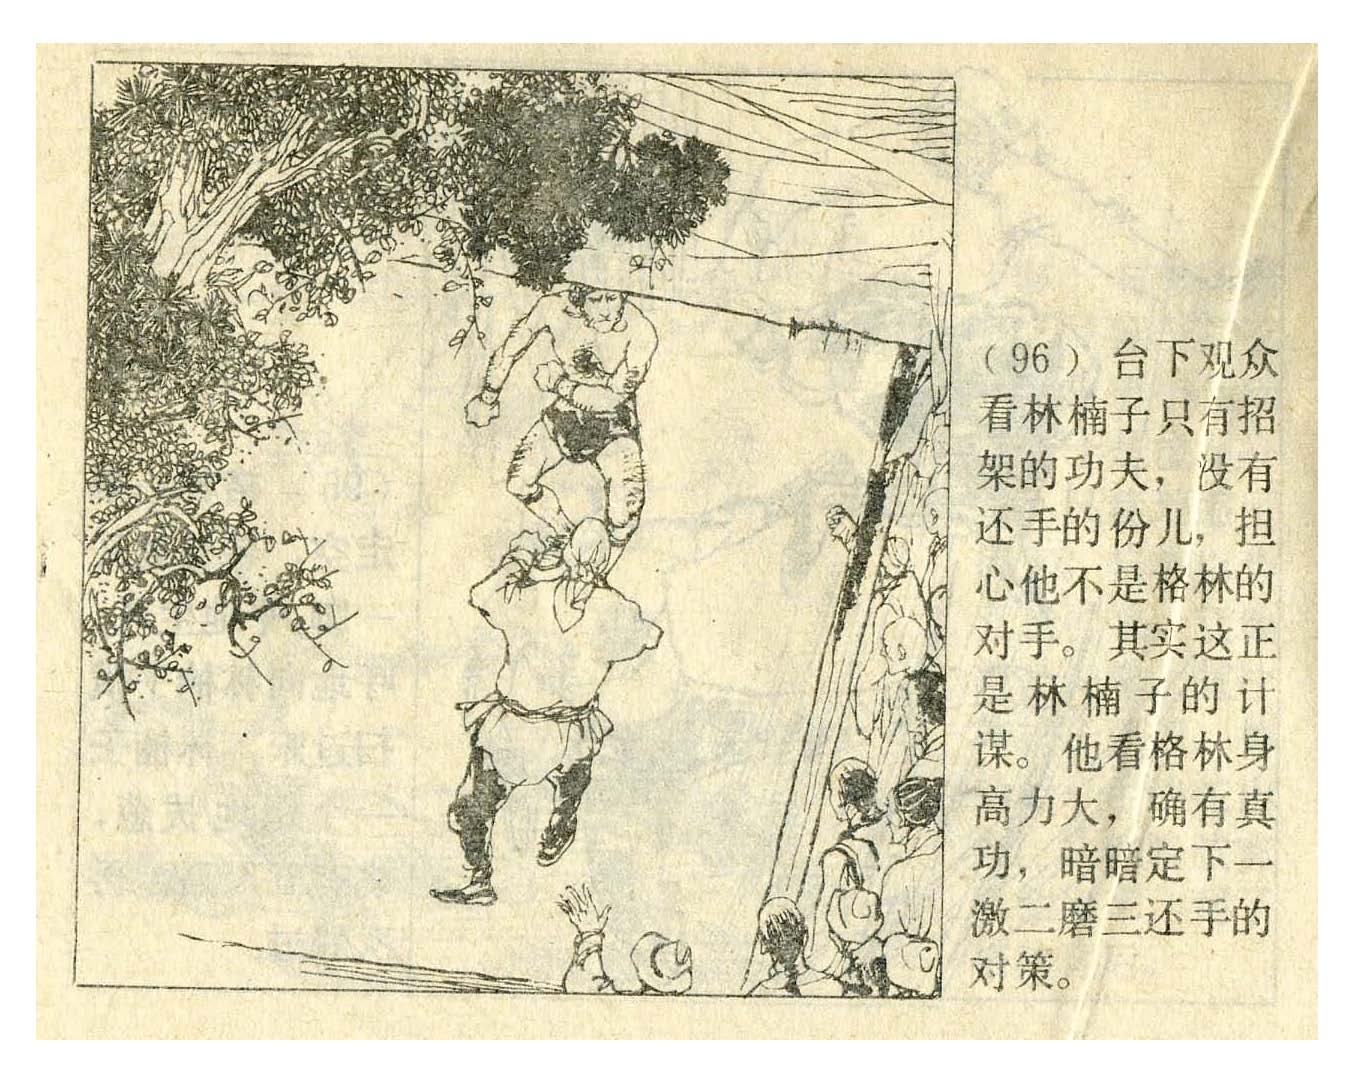 （96）台下观众
看林楠子只有招
架的功夫，没有
还手的份儿，担
心他不是格林的
对手。其实这正
是林楠子的计
谋。他看格林身
高力大，确有真
功，暗暗定下一
激二磨三还手的
对策。